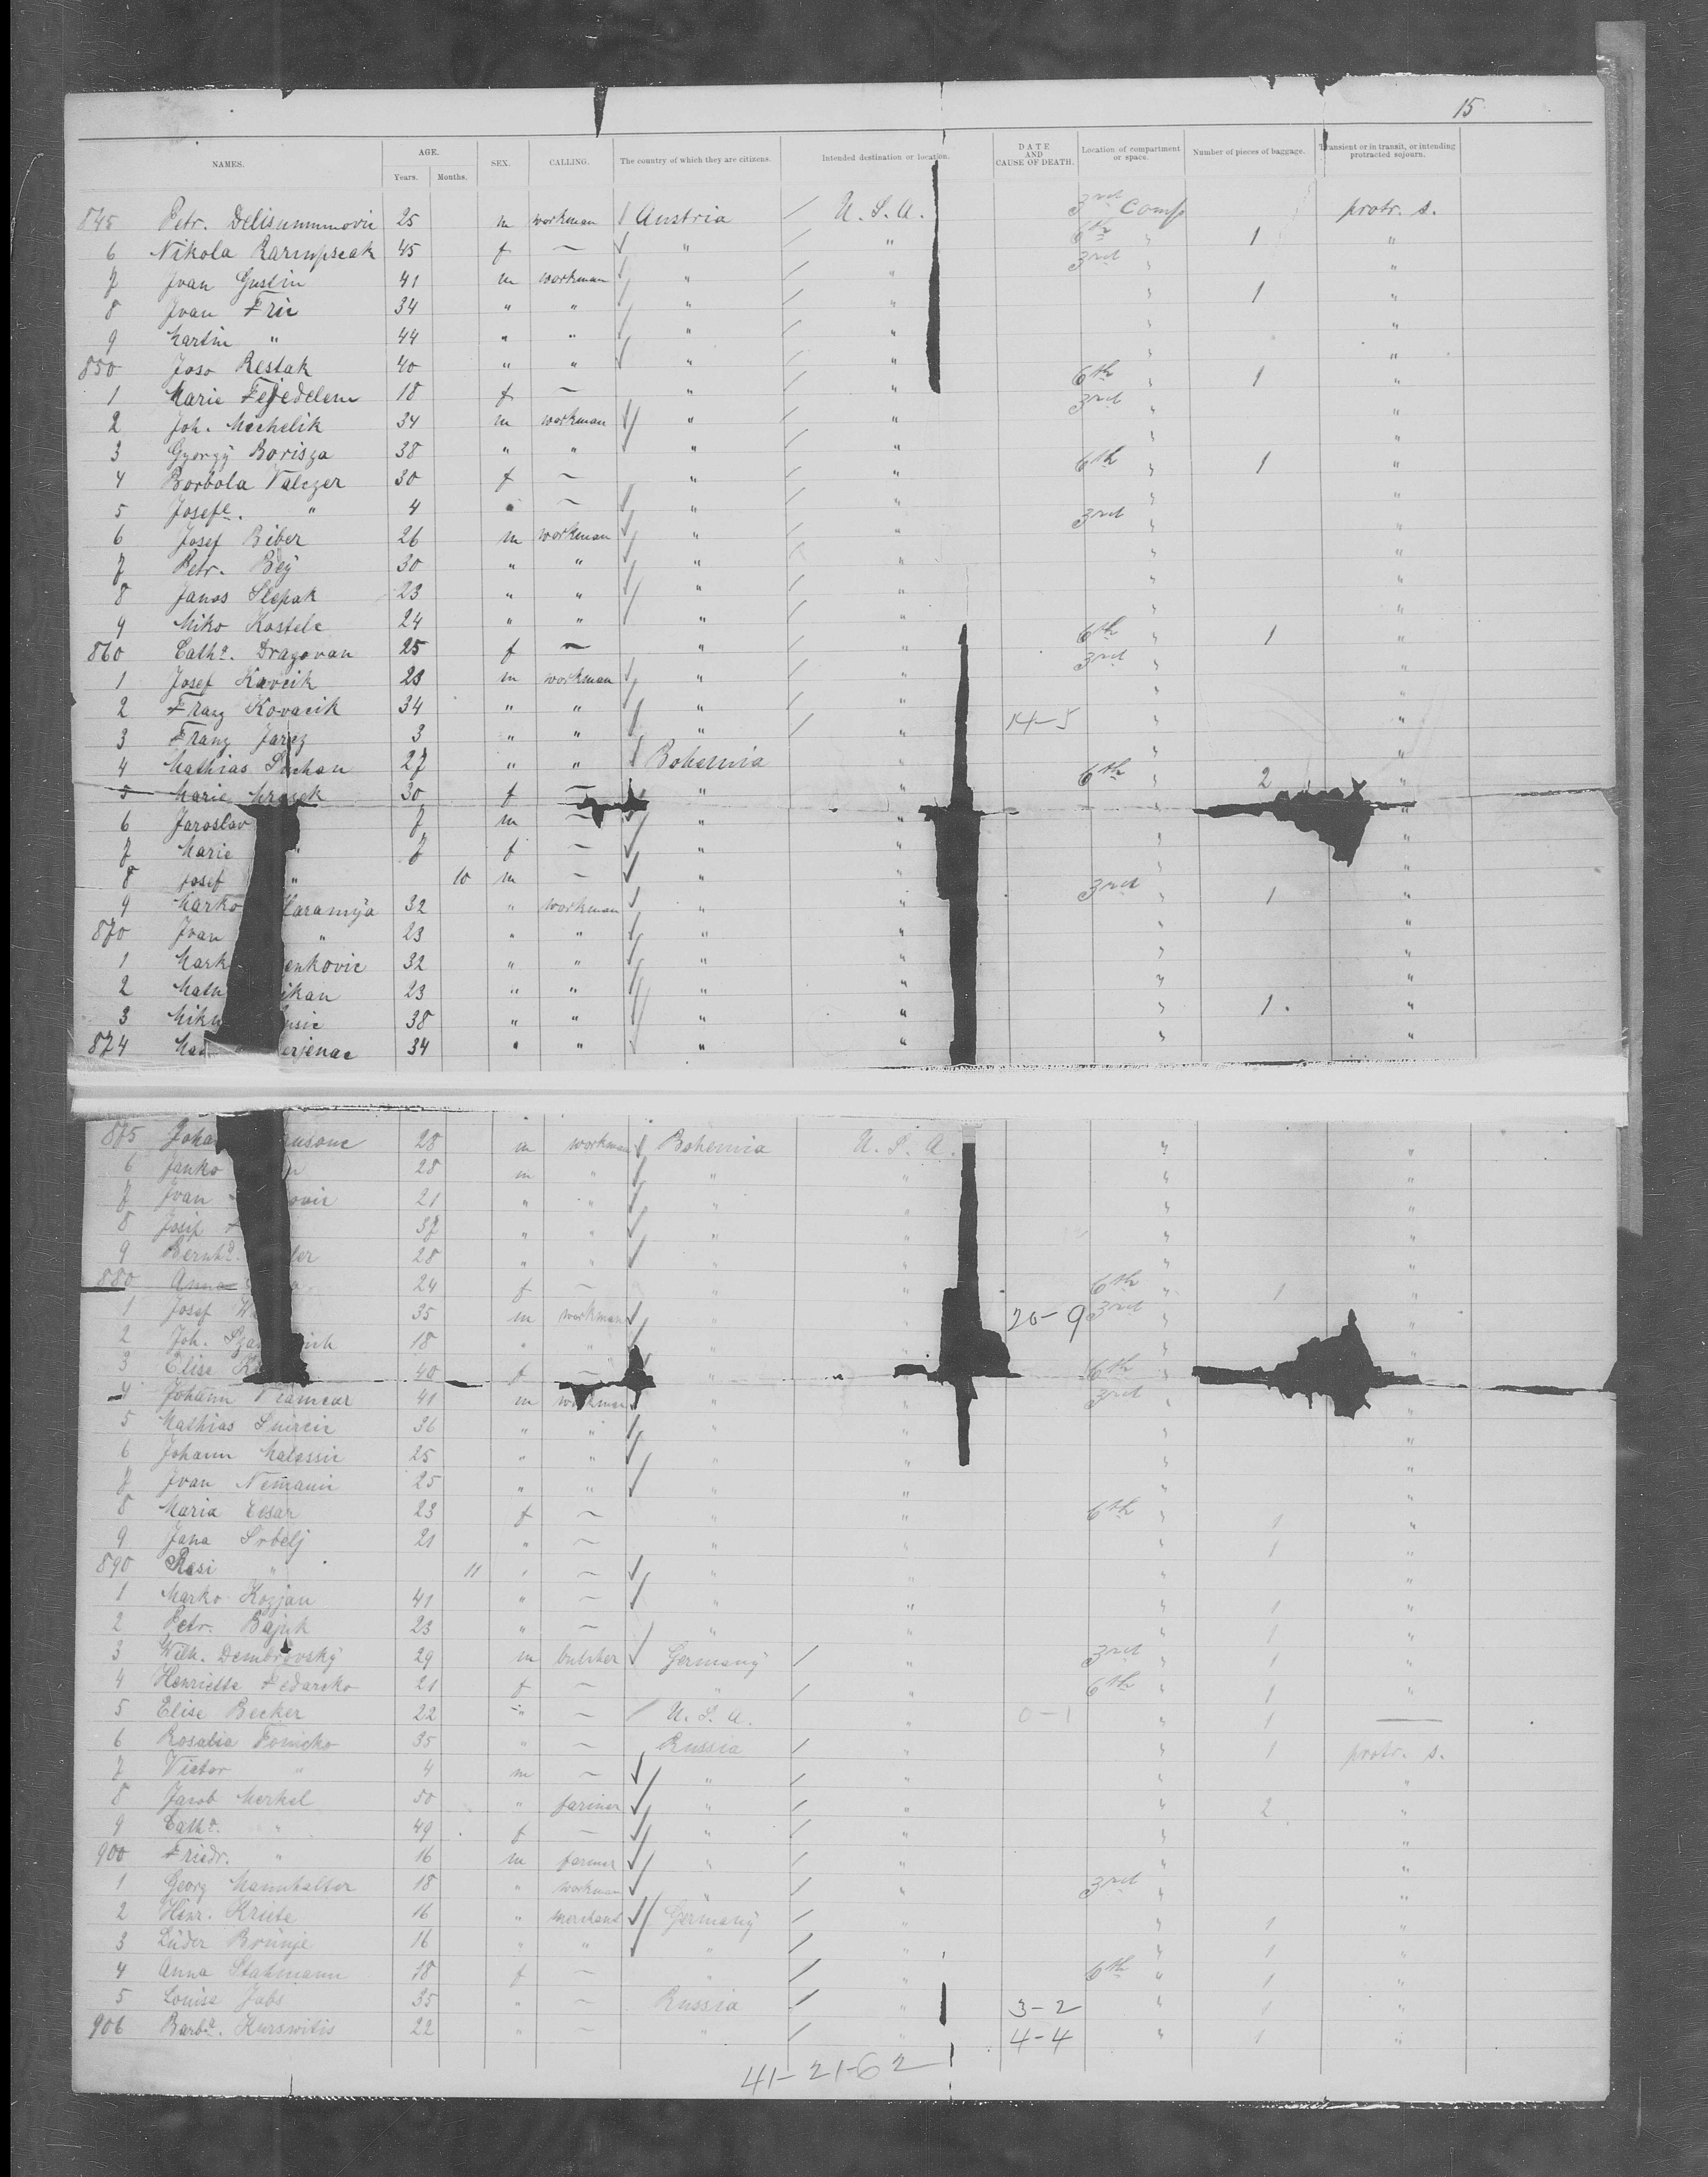 15
NAMES. AGE. Years. Months. SEX. CALLING. The country of which they are citizens. Intended destination or location. DATE AND CAUSE OF DEATH. Location of compartment or space. Number of pieces of baggage. Transient or in transit, or intending protracted sojourn.
845 Petr. 25 m workman / Austria / U. S. A. 3rd Comp protr. s.
6 Nikola 45 f — " / " 6th " 1 "
7 Ivan Gustin 41 m workman " / " 3rd " "
8 Ivan Fric 34 " " " / " " 1 "
9 Martin " 44 " " " / " " "
850 Joso Restak 40 " " " / " " "
1 Marie Fejedelem 18 f — " / " 6th " 1 "
2 Joh. Michelik 34 m workman " / " 3rd " "
3 György Borisza 38 " " " / " " "
4 Borbola Valezer 30 f — " / " 6th " 1 "
5 Josefe. " 4 " — " / " " "
6 Josef Biber 26 m workman " / " 3rd " "
7 Petr. Bey 30 " " " " " "
8 Janos Slepak 23 " " " / " " "
9 Miko Kostele 24 " " " / " " "
860 Catha. Dragovan 25 f — " / " 6th " 1 "
1 Josef Kovcik 23 m workman " / " 3rd " "
2 Franz Kovacik 34 " " " / " " "
3 Franz Jarez 3 " " " / " 14-5 " "
4 Mathias 27 " " Bohemia " " "
5 Marie Mrasek 30 f — " " 6th " 2 "
6 Jaroslav 7 m — " " " "
7 Marie " 7 f — " " " "
8 Josef " 10 m — " " " "
9 Marko 32 " workman " " 3rd " 1 "
870 Ivan " 23 " " " " " "
1 Mark enkovic 32 " " " " " "
2 Math ikan 23 " " " " " "
3 usic 38 " " " " " 1. "
874 erjenac 34 " " " " " "
875 Joha 28 m workman Bohemia U. S. A. " "
6 Janko 28 m " " " " "
7 Ivan ovic 21 " " " " " "
8 Josip 37 " " " " " "
9 Bernhd. ler 28 " " " " " "
880 Anna 24 f — " " 6th " 1 "
1 Josef 35 m workman " " 20-9 3rd " "
2 Joh. 18 " " " " " "
3 Elise 40 f — " " 6th "
4 Johann 41 m workman " " 3rd " "
5 Mathias 36 " " " " " "
6 Johann Malessic 25 " " " " " "
7 Ivan Nemanic 25 " " " " " "
8 Maria Cesar 23 f — " " 6th " 1 "
9 Jana Srbelj 21 " — " " " 1 "
890 Rasi " 11 " — " " " "
1 Marko Kozjan 41 " — " " " 1 "
2 Petr. Bajuk 23 " — " " " 1 "
3 Wilh. Dembrovsky 29 m butcher Germany / " 3rd " 1 "
4 Henriette Fedarcko 21 f — " / " 6th " 1 "
5 Elise Becker 22 " — / U. S. A. " 0-1 " 1 —
6 Rosalia Fomicko 35 " — Russia / " " 1 protr. s.
7 Victor " 4 m — " / " " "
8 Jacob Merkel 50 " farmer " / " " 2 "
9 Catha. " 49 f — " / " " "
900 Friedr. " 16 m farmer " / " " "
1 Georg Mannhalter 18 " workman " / " 3rd " "
2 Heinr. Kriete 16 " merchant Germany / " " 1 "
3 Lüder Brünje 16 " " " / " " 1 "
4 Anna Statmann 18 f — " / " 6th " 1 "
5 Louise Jabs 35 " — Russia / " 3-2 " 1 "
906 Barba. Kurswitis 22 " — " / " 4-4 " 1 "
41-21-62